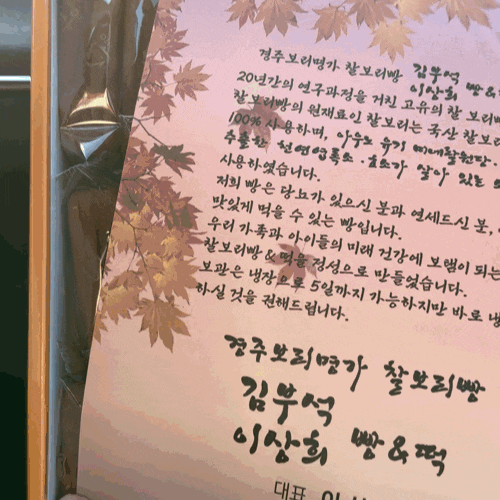 경주보리명가 찰보리빵 김부석 빵&
이상희
20년간의 연구과정을 거친 고유의 찰 보리빵
찰보리빵의 원재료인 찰보리는 국산 찰보리
100% 사용하며,
추출한 천연엽록소·효소가 살아 있는
사용하였습니다.
저희 빵은 당뇨가 있으신 분과 연세드신 분,
맛있게 먹을 수 있는 빵입니다.
우리 가족과 아이들의 미래 건강에 보탬이 되는
찰보리빵&떡을 정성으로 만들었습니다.
보관은 냉장으로 5일까지 가능하지만 바로 냉
하실 것을 권해드립니다.
경주보리명가 찰보리빵
김부석
이상희 빵&떡
대표